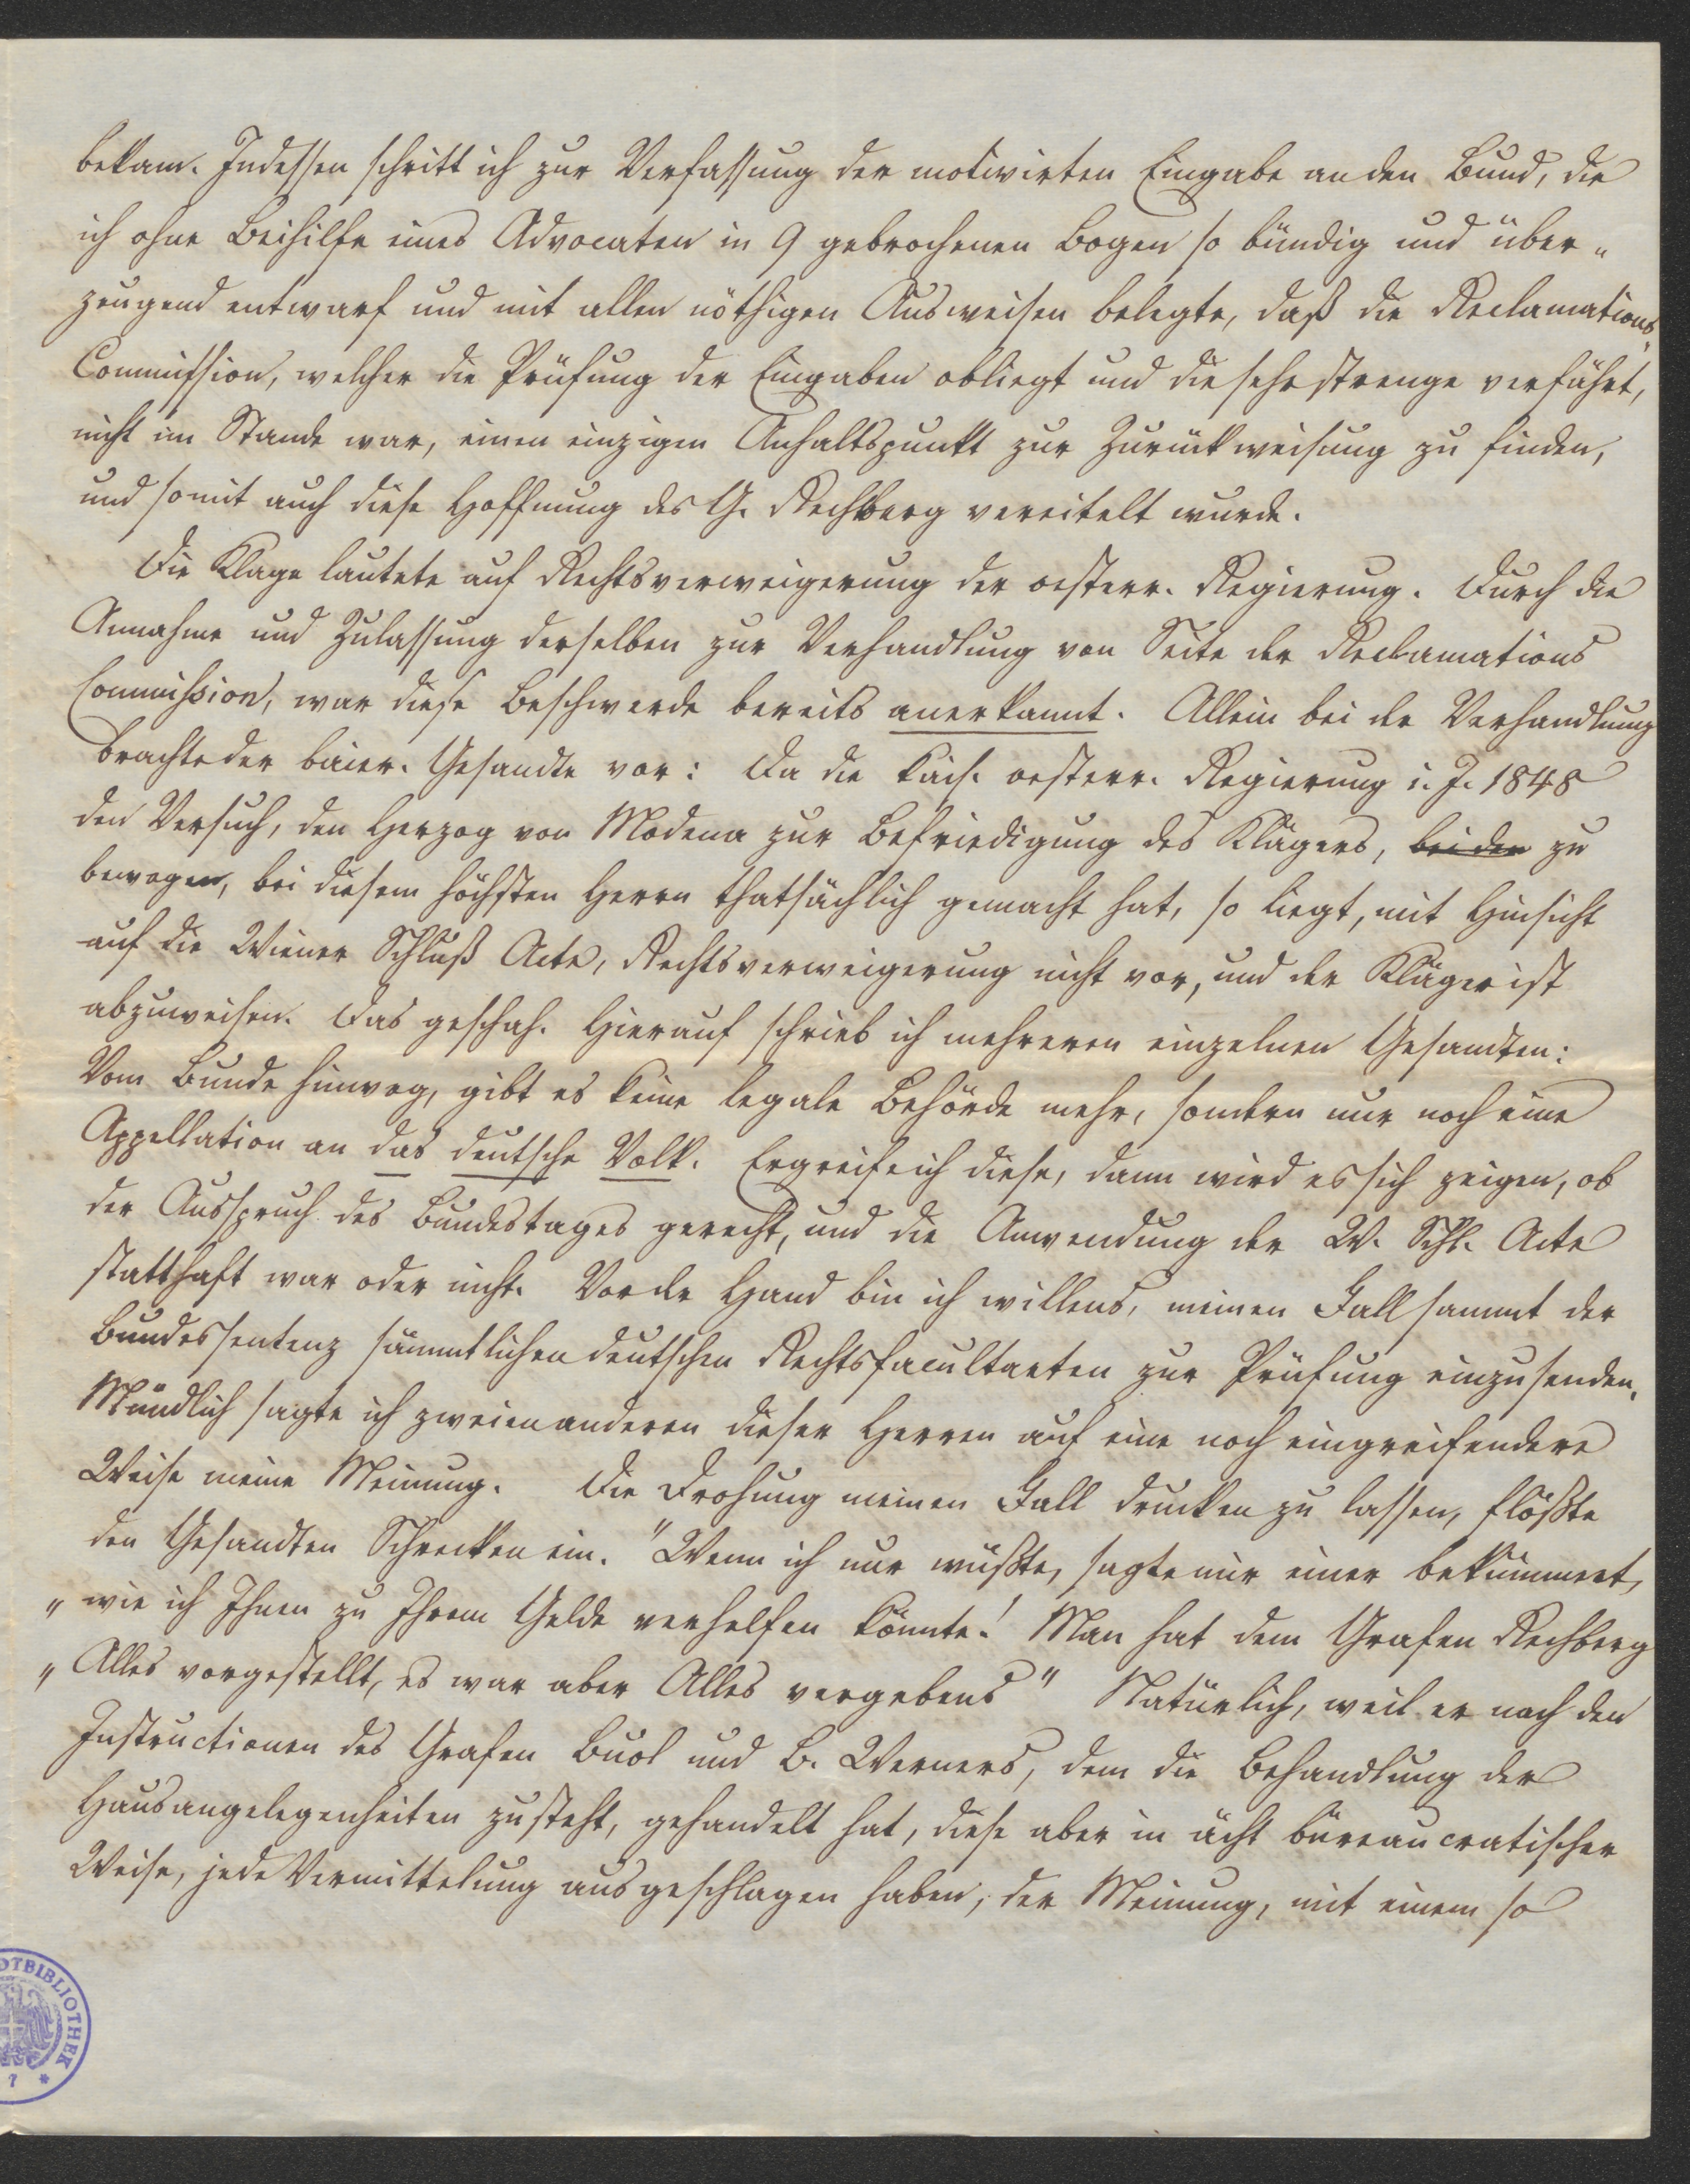 bekam. Indessen schritt ich zur Verfassung der motivirten Eingabe an den Bund, die
ich ohne Beihilfe eines Advocaten in 9 gebrochenen Bogen so bündig und über„
zeugend entwarf und mit allen nöthigen Ausweisen belegte, daß die Reclamations„
Commission, welcher die Prüfung der Eingaben obliegt und die sehr strenge verfährt,
nicht im Stande war, einen einzigen Anhaltspunkt zur Zurückweisung zu finden,
und somit auch diese Hoffnung des G. Rechberg vereitelt wurde.
Die Klage lautete auf Rechtsverweigerung der oesterr. Regierung. Durch die
Annahme und Zulassung derselben zur Verhandlung von Seite der Reclamations
Commission, war diese Beschwerde bereits anerkannt. Allein bei der Verhandlung
brachte der baier. Gesandte vor: Da die kais. oesterr. Regierung i. J. 1848
den Versuch, den Herzog von Modena zur Befriedigung des Klägers, bei den zu
bewegen, bei diesem höchsten Herrn thatsächlich gemacht hat, so liegt, mit Hinsicht
auf die Wiener Schluß Acte, Rechtsverweigerung nicht vor, und der Kläger ist
abzuweisen. Das geschah. Hierauf schrieb ich mehreren einzelnen Gesandten:
Vom Bunde hinweg, gibt es keine legale Behörde mehr, sondern nur noch eine
Appellation an das deutsche Volk. Ergreife ich diese, dann wird es sich zeigen, ob
der Ausspruch des Bundestages gerecht, und die Anwendung der W. Schl. Acte
statthaft war oder nicht. Vor der Hand bin ich willens, meinen Fall sammt der
Bundessentenz sämmtlichen deutschen Rechtsfacultaeten zur Prüfung einzusenden.
Mündlich sagte ich zweien anderen dieser Herren auf eine noch eingreifendere
Weise meine Meinung. Die Drohung meinen Fall drucken zu lassen, flößte
den Gesandten Schrecken ein. "Wenn ich nur wüßte, sagte mir einer bekümmert,
„wie ich Ihnen zu Ihrem Gelde verhelfen könnte! Man hat dem Grafen Rechberg
„Alles vorgestellt, es war aber Alles vergebens" Natürlich, weil er nach den
Instructionen des Grafen Buol und B. Werners, dem die Behandlung der
Hausangelegenheiten zusteht, gehandelt hat, diese aber in ächt büreaucratischer
Weise, jede Vermittelung ausgeschlagen haben, der Meinung, mit einem so
DTBIBLIOTHEK
7 *